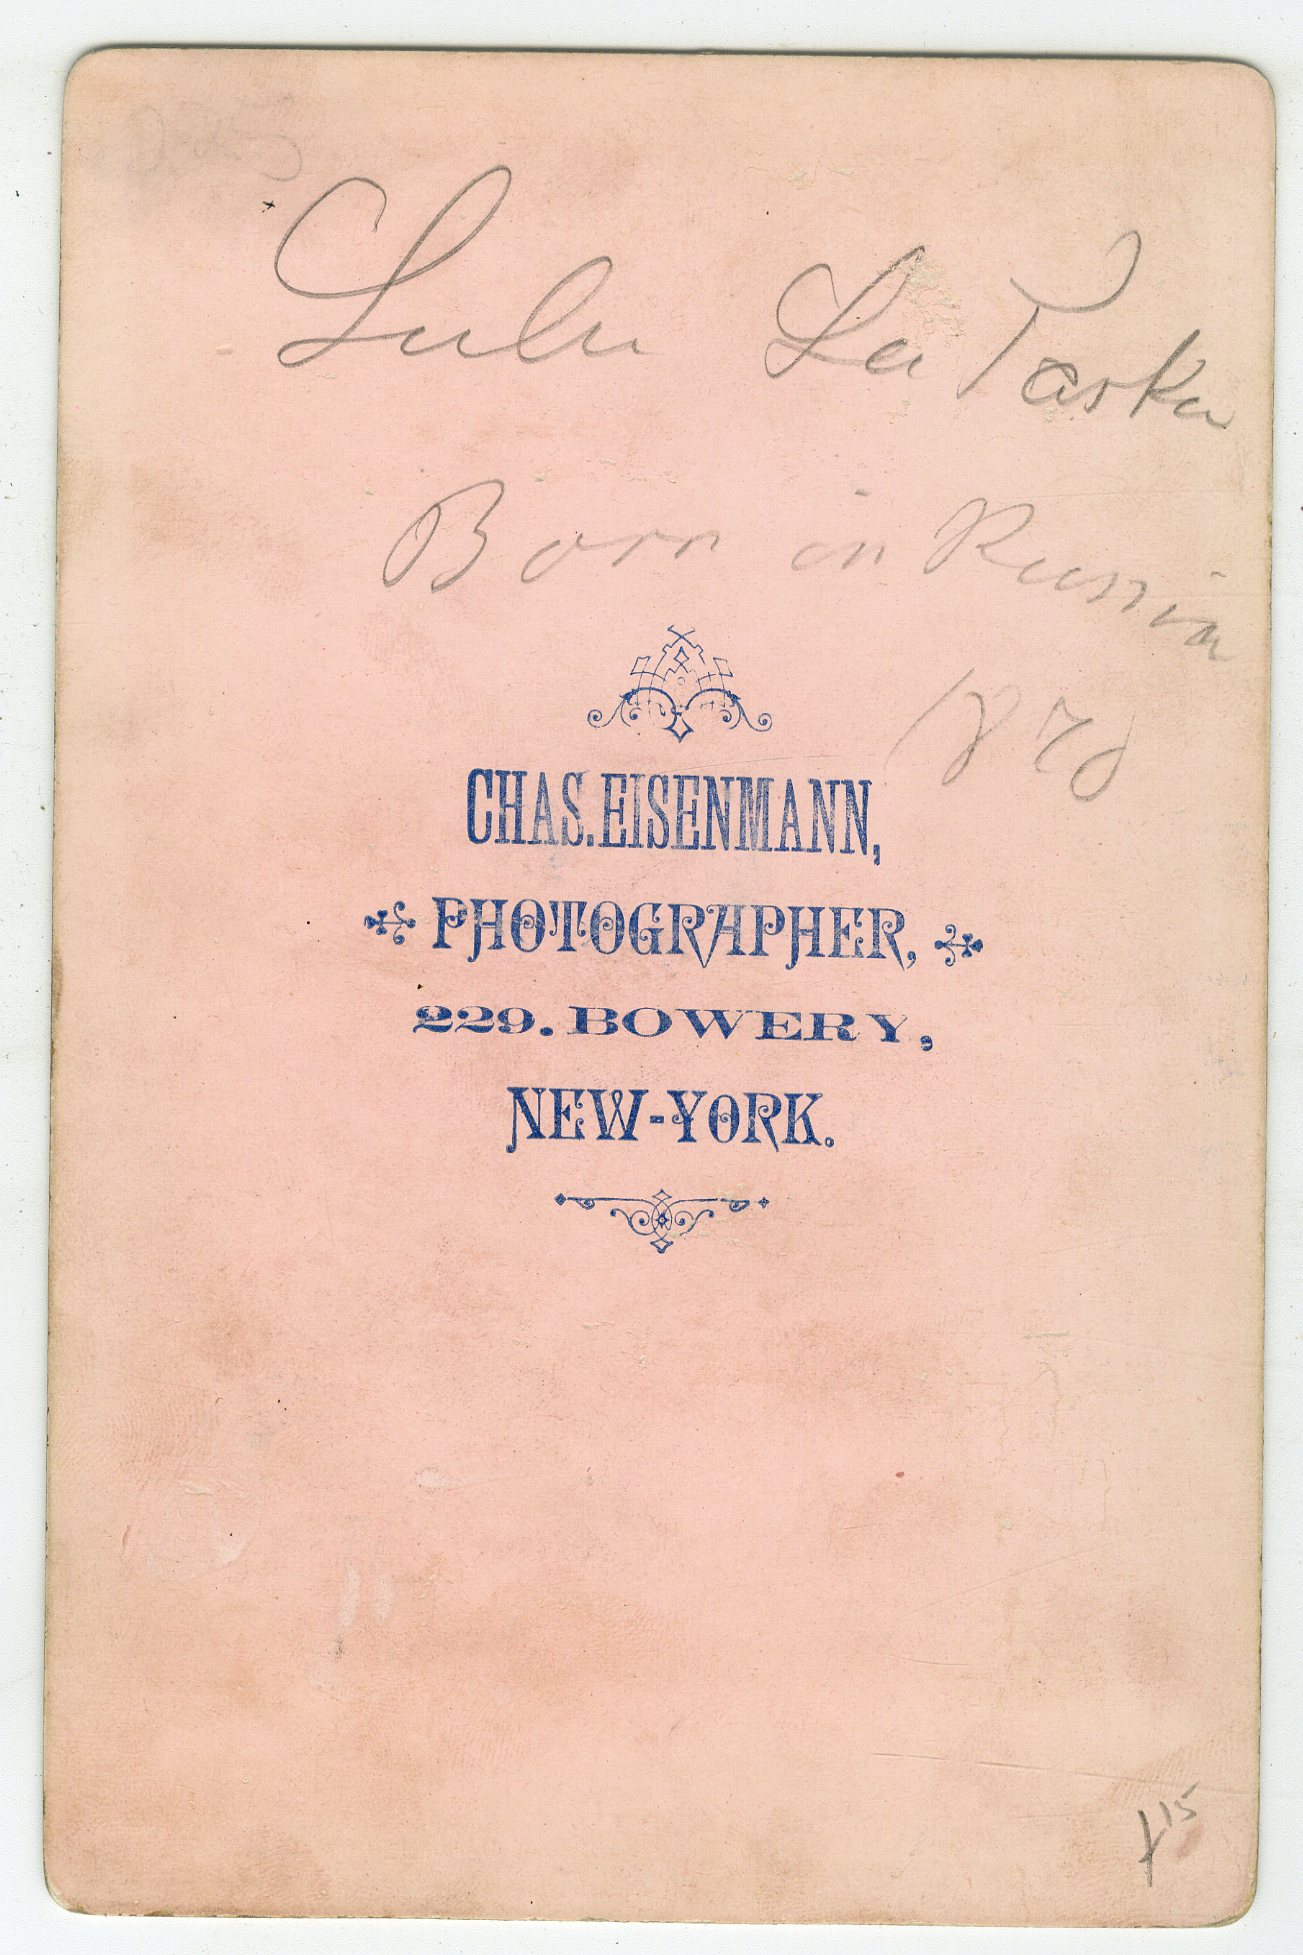 Lulu La Taska
Born in Russia
1870
CHAS. EISENMANN,
PHOTOGRAPHER,
229. BOWERY,
NEW-YORK.